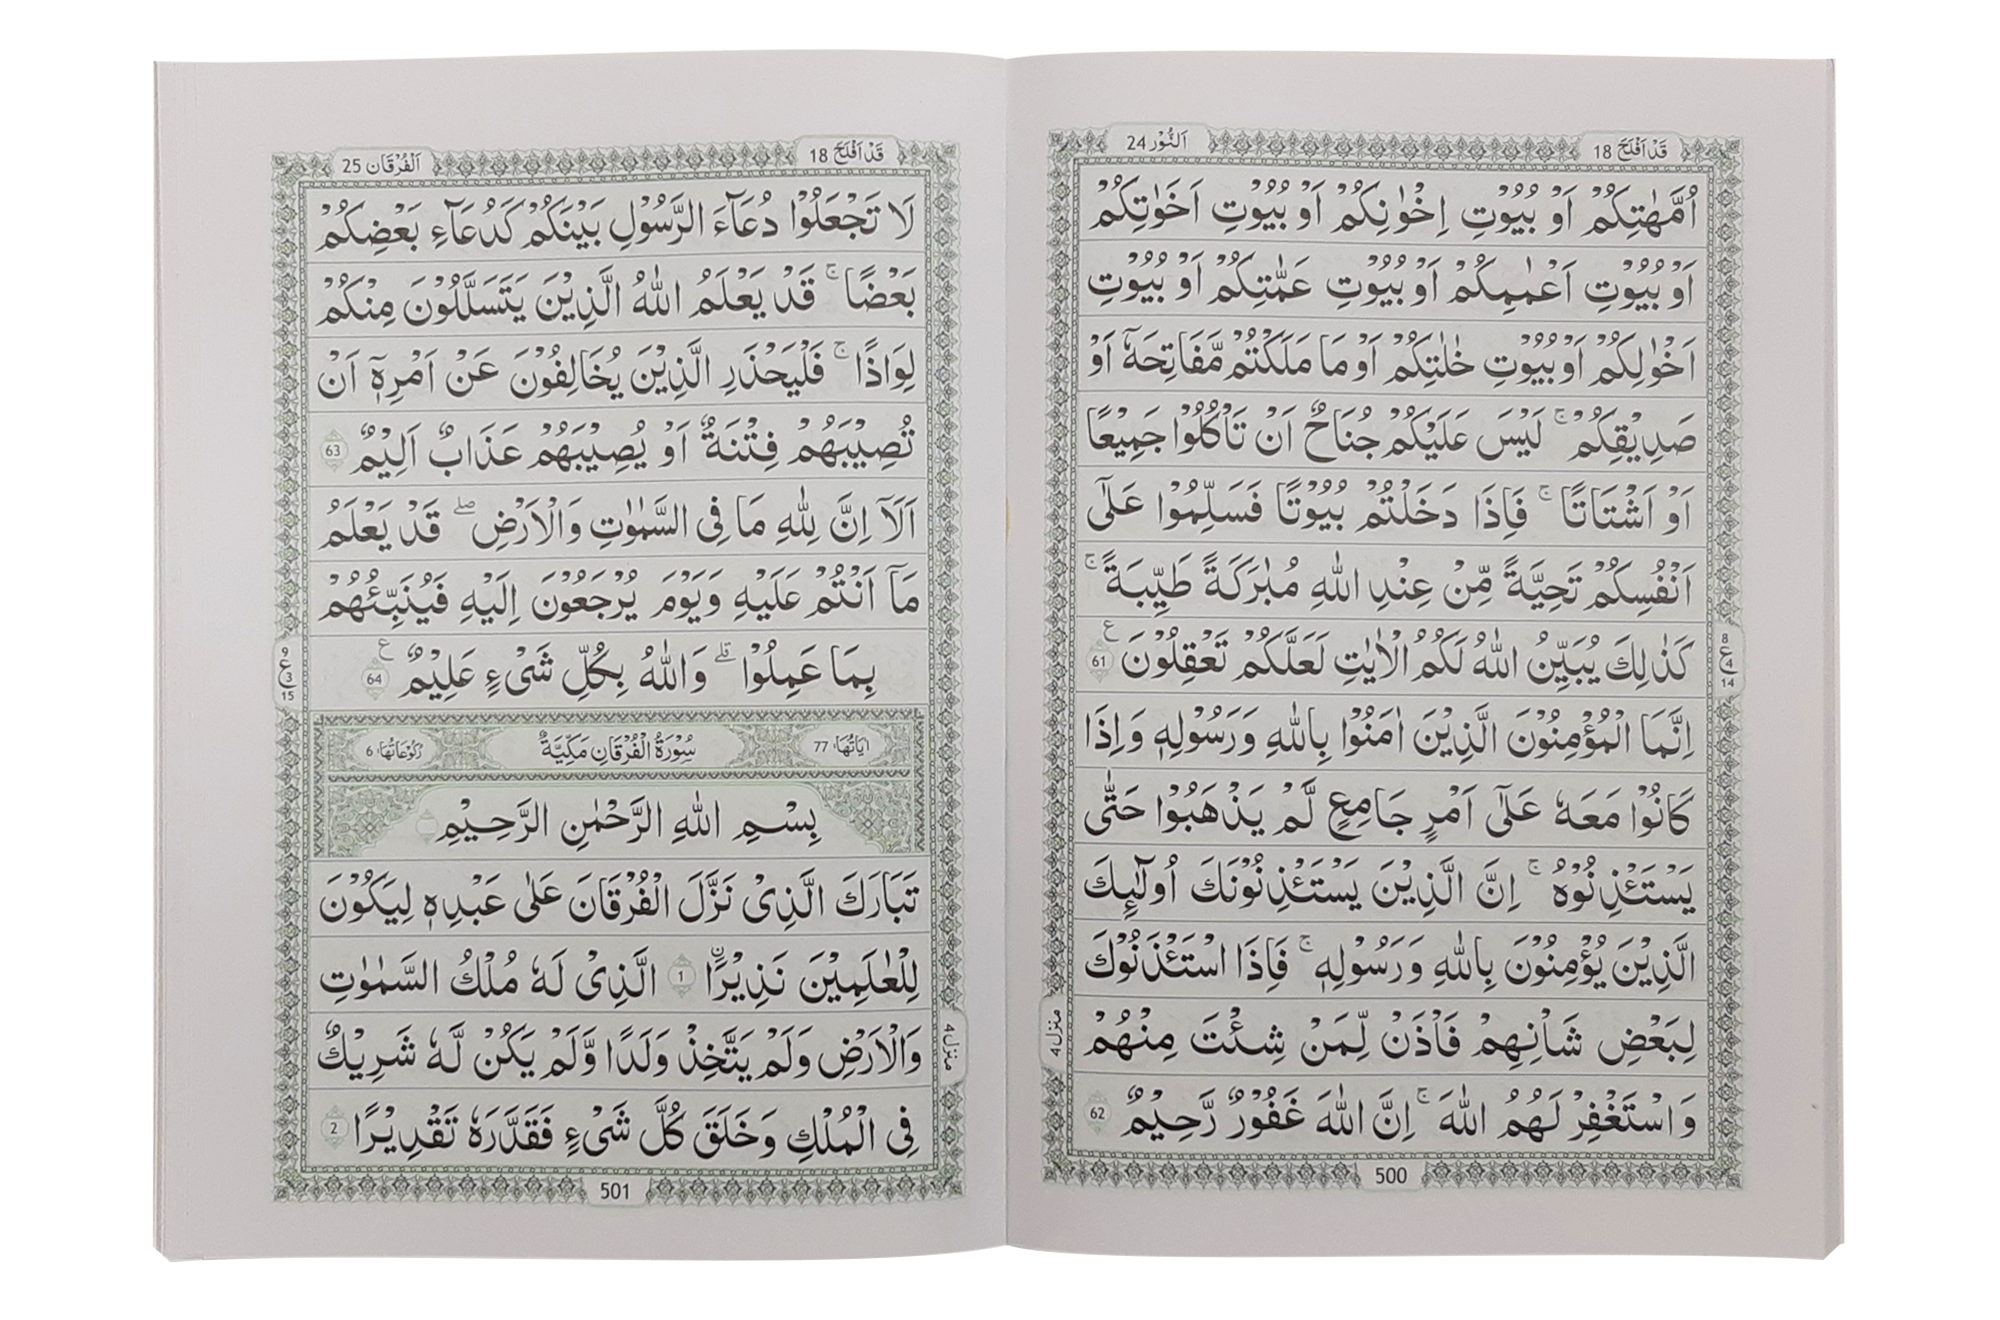 اَلنُّوْر 24
قَدْ اَفْلَحَ 18
اُمَّهٰتِكُمْ اَوْ بُيُوْتِ اِخْوَانِكُمْ اَوْ بُيُوْتِ اَخَوٰتِكُمْ
اَوْ بُيُوْتِ اَعْمَامِكُمْ اَوْ بُيُوْتِ عَمّٰتِكُمْ اَوْ بُيُوْتِ
اَخْوَالِكُمْ اَوْ بُيُوْتِ خٰلٰتِكُمْ اَوْ مَا مَلَكْتُمْ مَّفَاتِحَهٗٓ اَوْ
صَدِيْقِكُمْ ۚ لَيْسَ عَلَيْكُمْ جُنَاحٌ اَنْ تَاْكُلُوْا جَمِيْعًا
اَوْ اَشْتَاتًا ۚ فَاِذَا دَخَلْتُمْ بُيُوْتًا فَسَلِّمُوْا عَلٰٓى
اَنْفُسِكُمْ تَحِيَّةً مِّنْ عِنْدِ اللّٰهِ مُبٰرَكَةً طَيِّبَةً ۚ
كَذٰلِكَ يُبَيِّنُ اللّٰهُ لَكُمُ الْاٰيٰتِ لَعَلَّكُمْ تَعْقِلُوْنَ ع 61
8
ع 4
14
اِنَّمَا الْمُؤْمِنُوْنَ الَّذِيْنَ اٰمَنُوْا بِاللّٰهِ وَرَسُوْلِهٖ وَاِذَا
كَانُوْا مَعَهٗ عَلٰٓى اَمْرٍ جَامِعٍ لَّمْ يَذْهَبُوْا حَتّٰى
يَسْتَـْٔذِنُوْهُ ۚ اِنَّ الَّذِيْنَ يَسْتَـْٔذِنُوْنَكَ اُولٰٓئِكَ
الَّذِيْنَ يُؤْمِنُوْنَ بِاللّٰهِ وَرَسُوْلِهٖ ۚ فَاِذَا اسْتَـْٔذَنُوْكَ
لِبَعْضِ شَاْنِهِمْ فَاْذَنْ لِّمَنْ شِئْتَ مِنْهُمْ
منزل 4
وَاسْتَغْفِرْ لَهُمُ اللّٰهَ ۚ اِنَّ اللّٰهَ غَفُوْرٌ رَّحِيْمٌ 62
500
اَلْفُرْقَان 25
قَدْ اَفْلَحَ 18
لَا تَجْعَلُوْا دُعَآءَ الرَّسُوْلِ بَيْنَكُمْ كَدُعَآءِ بَعْضِكُمْ
بَعْضًا ۚ قَدْ يَعْلَمُ اللّٰهُ الَّذِيْنَ يَتَسَلَّلُوْنَ مِنْكُمْ
لِوَاذًا ۚ فَلْيَحْذَرِ الَّذِيْنَ يُخَالِفُوْنَ عَنْ اَمْرِهٖٓ اَنْ
تُصِيْبَهُمْ فِتْنَةٌ اَوْ يُصِيْبَهُمْ عَذَابٌ اَلِيْمٌ 63
اَلَآ اِنَّ لِلّٰهِ مَا فِى السَّمٰوٰتِ وَالْاَرْضِ ۖ قَدْ يَعْلَمُ
مَآ اَنْتُمْ عَلَيْهِ وَيَوْمَ يُرْجَعُوْنَ اِلَيْهِ فَيُنَبِّئُهُمْ
بِمَا عَمِلُوْا ۗ وَاللّٰهُ بِكُلِّ شَىْءٍ عَلِيْمٌ ع 64
9
ع 3
15
اٰيَاتُهَا، 77 سُوْرَةُ الْفُرْقَانِ مَكِّيَّةٌ رُكُوْعَاتُهَا، 6
بِسْمِ اللّٰهِ الرَّحْمٰنِ الرَّحِيْمِ
تَبَارَكَ الَّذِىْ نَزَّلَ الْفُرْقَانَ عَلٰى عَبْدِهٖ لِيَكُوْنَ
لِلْعٰلَمِيْنَ نَذِيْرًا 1 الَّذِىْ لَهٗ مُلْكُ السَّمٰوٰتِ
وَالْاَرْضِ وَلَمْ يَتَّخِذْ وَلَدًا وَّلَمْ يَكُنْ لَّهٗ شَرِيْكٌ
منزل 4
فِى الْمُلْكِ وَخَلَقَ كُلَّ شَىْءٍ فَقَدَّرَهٗ تَقْدِيْرًا 2
501